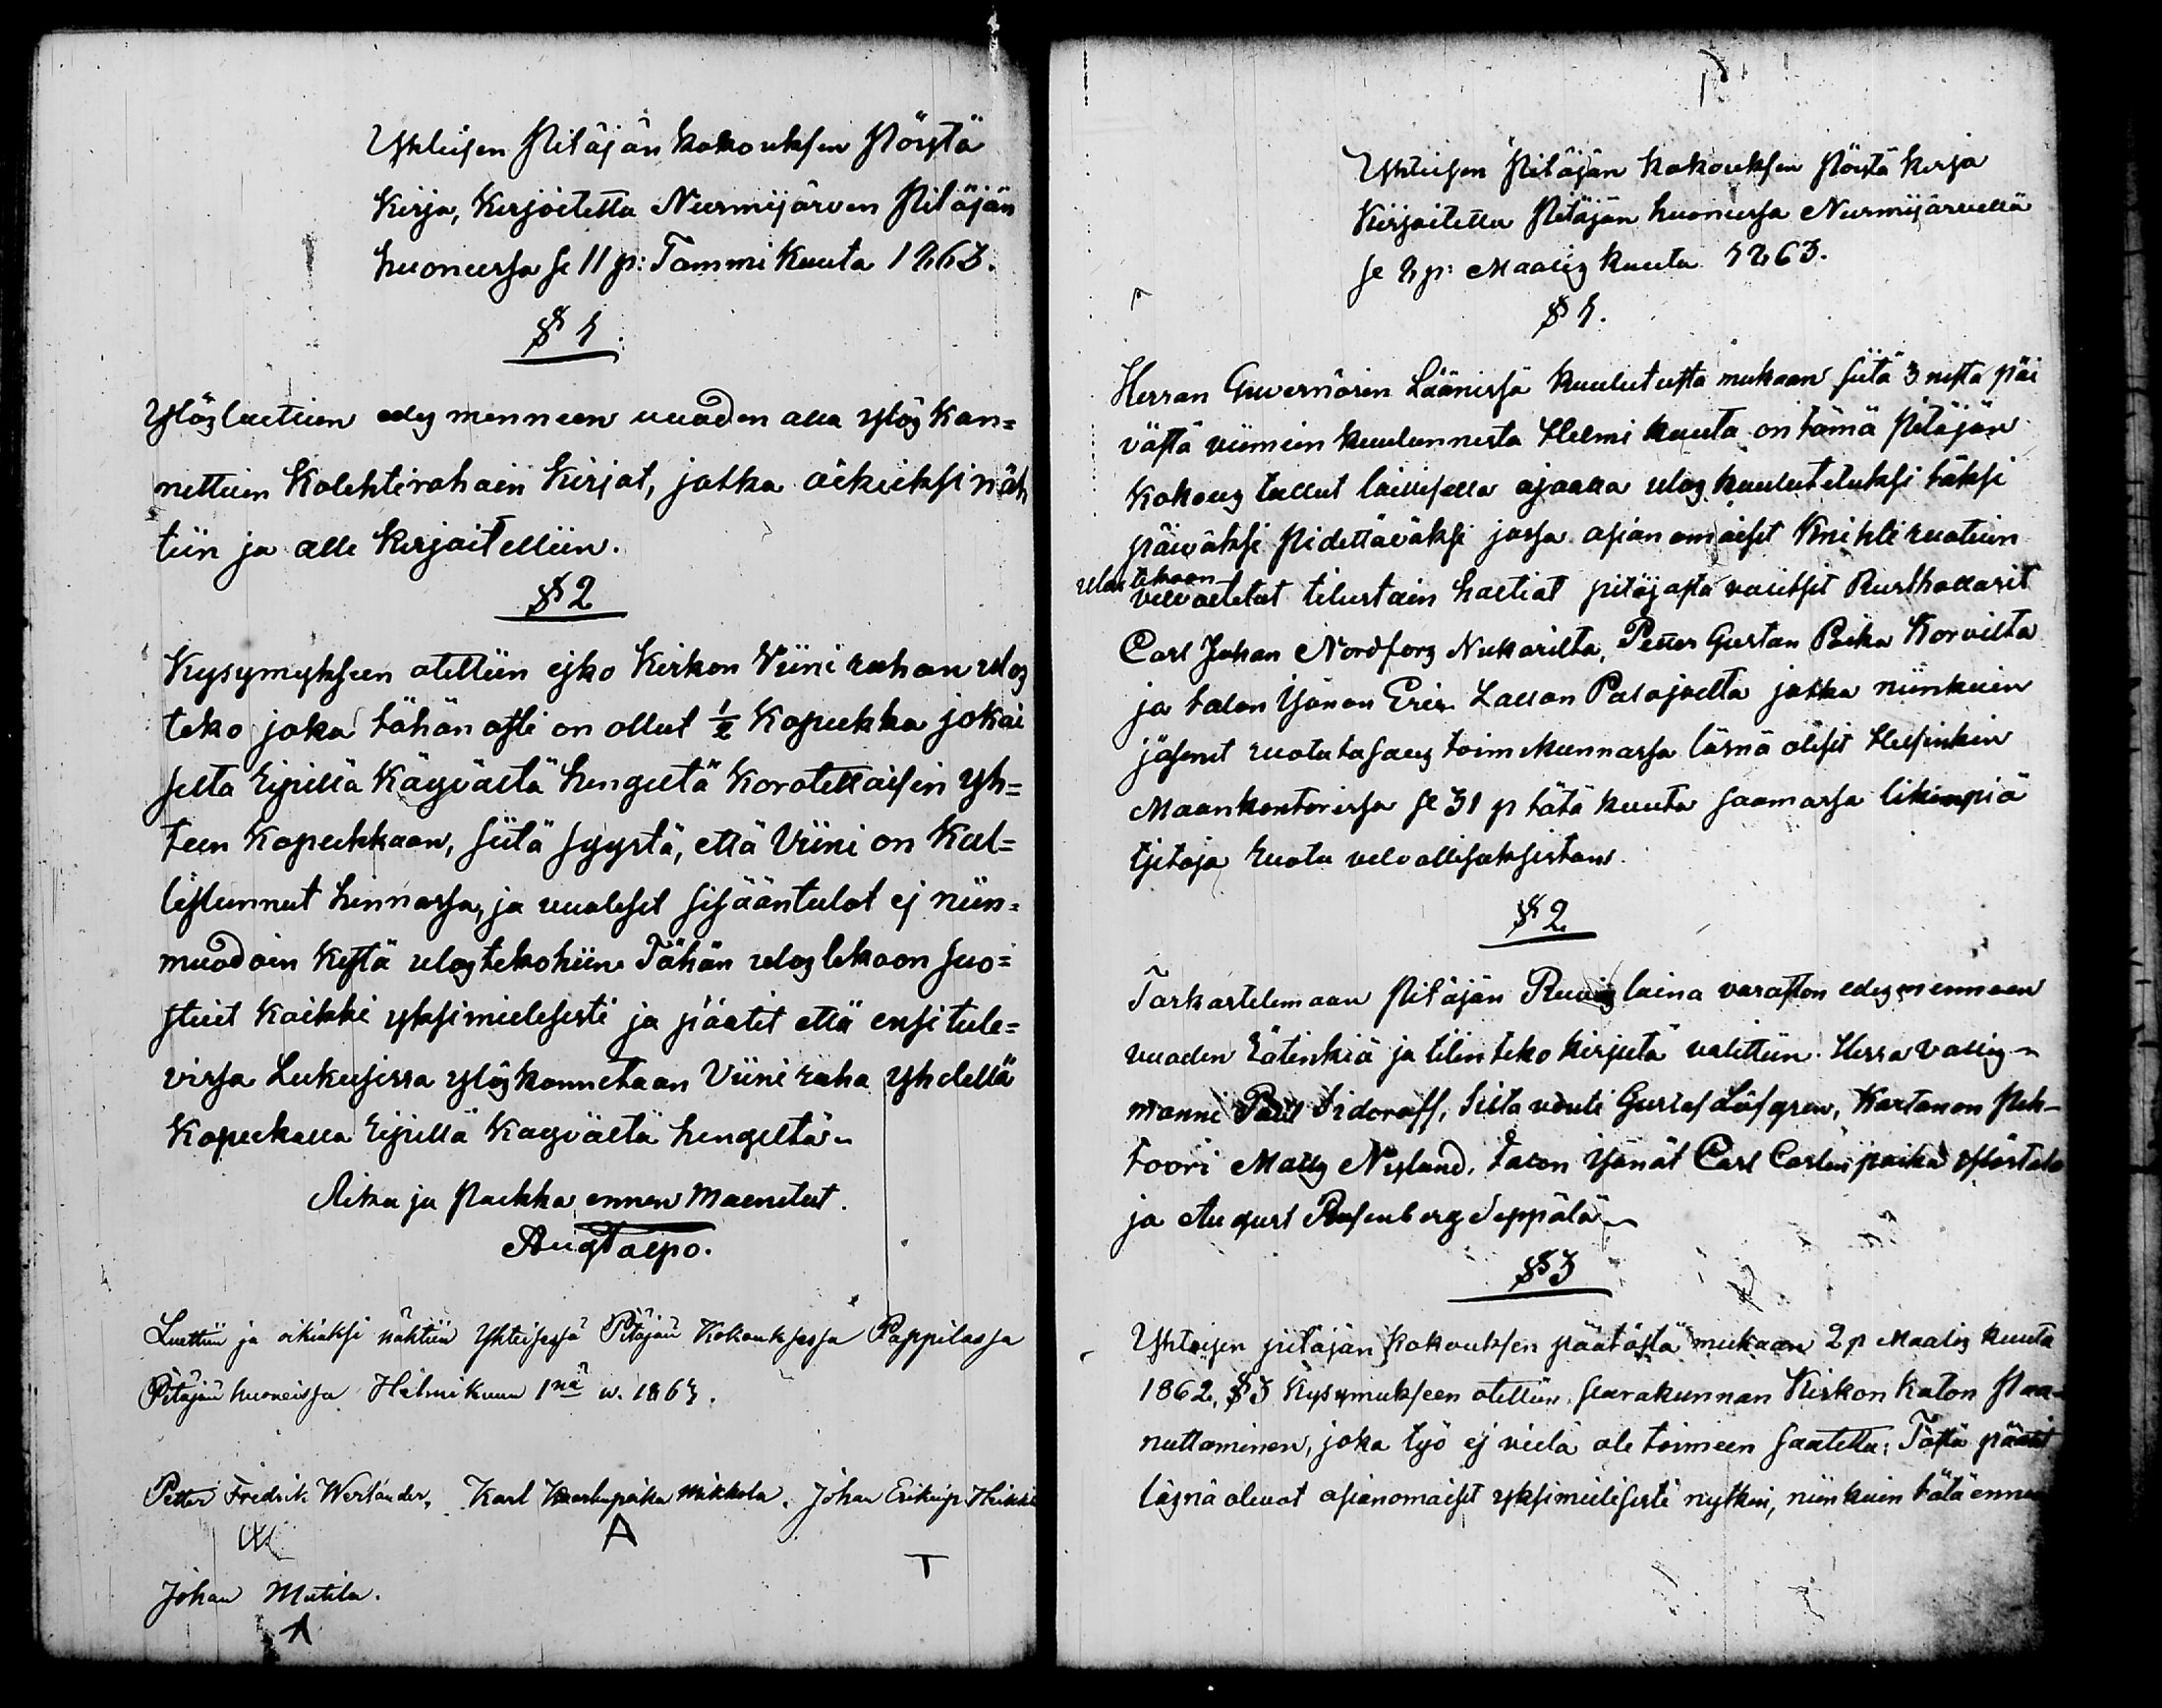 Yhteisen Pitäjän kokouksen Pöytä
kirja, kirjoitettu Nurmijärven Pitäjän
huoneessa se 11 p: Tammi kuuta 1863.
§ 1
Ylösluettiin edes menneen vuoden alla ylös kan=
nettuin Kolehtirahain kirjat, jotka oikeiksi näh
tiin ja alle kirjoitettiin.
§ 2
Kysymykseen otettiin ejkö Kirkon Viini rahan ulos
teko joka tähän asti on ollut ½ Kopeekka jokai
selta Ripillä käyvältä hengeltä korotettaisi yh=
teen Kopeekkaan, siitä syystä, että Viini on kal=
listunnut hinnassa, ja vuotiset sisääntulot ej niin=
muodoin kestä ulostekohiin. Tähän ulostekoon suo=
stuit kaikki yksimielisesti ja päätit että ensi tule=
vissa Lukusissa ylöskannetaan Viini raha yhdellä
kopeekalla Ripillä käyvältä hengeltä.
Aika ja Paikka ennen mainitut.
Aug Taipo.
Luettiin ja oikiaksi nähtiin Yhteisessä Pitäjän Kokouksessa Pappilassa
Pitäjän huoneissa Helmikuun 1nä w. 1863.
Petter Fredrik Werlander, Karl Kaarlenpoika Mikkola. Johan Erikinp Heikki
A
T
Johan Mutila.
A
Yhteisen Pitäjän kokouksen Pöytä kirja
Kirjoitettu Pitäjän huoneessa Nurmijärvellä
se 2 p: Maalis kuuta 1863.
§ 1.
Herran Guvernörin Läänissä kuulutusta mukaan siitä 3 nesta päi
västä viimein kuulunnesta Helmi kuuta on tämä Pitäjän
Kokous tullut laillisella ajaalla ulos kuulutetuksi täksi
päiväksi Pidettäväksi jossa asian omaiset Knihti ruotuin
ulos tekoon
velvoitetut tilustain haltiat pitäjästä valitsit Rusthollarit
Carl Johan Nordfors Nukarilta, Petter Gustav Poika Korvilta
ja talon Isännän Eric Lallan Palojoelta jotka niinkuin
jäsenet ruotutasaus toimikunnassa läsnä olisit Helsinkin
Maankontorissa se 31 p tätä kuuta saamassa likempiä
tjetoja Ruotu velvollisuksistans.
§ 2
Tarkastelemaan Pitäjän Ruis laina varaston edesmenneen
vuoden Räkinkiä ja tilinteko kirjuta valittiin Herra vallis-
manni Paul Sidoroff, Silta vouti Gustaf Löfgren, Kartanon Peh-
toori Matts Nylund, talon Isänät Carl Carlinpoika Ylöstalo
ja August Rosenberg Seppälä
§ 3
Yhteisen pitäjän kokouksen päätöstä mukaan 2 p Maalis kuuta
1862, § 3 Kysymukseen otettiin seurakunnan Kirkon katon Paa-
nuttaminen, joka työ ej vielä ole toimeen saatettu; Tästä päätit
läsnä olevat asianomaiset yksimielisesti nytkin, niinkuin tätä ennen